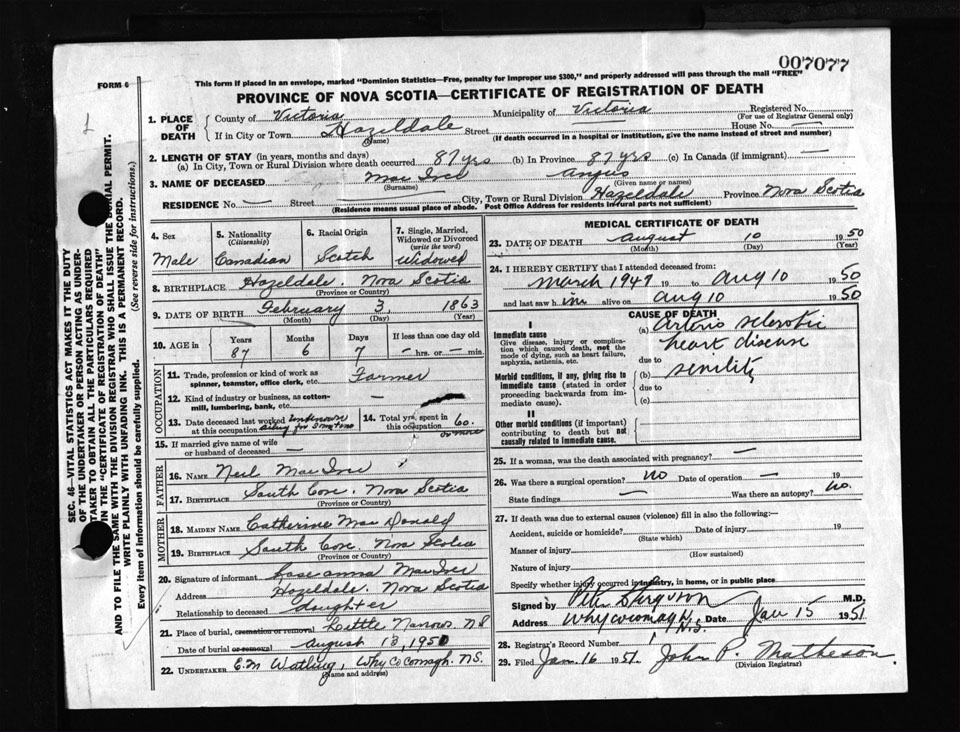 007077
FORM 6
This form if placed in an envelope, marked "Dominion Statistics—Free, penalty for improper use $300," and properly addressed will pass through the mail "FREE"
PROVINCE OF NOVA SCOTIA—CERTIFICATE OF REGISTRATION OF DEATH
1. PLACE OF DEATH County of Victoria Municipality of Victoria Registered No.
(For use of Registrar General only)
If in City or Town Hazeldale Street House No. —
(Name) (If death occurred in a hospital or institution, give the name instead of street and number)
2. LENGTH OF STAY (in years, months and days)
(a) In City, Town or Rural Division where death occurred 87 yrs (b) In Province 87 yrs (c) In Canada (if immigrant) —
3. NAME OF DECEASED Mac Iver Angus
(Surname) (Given name or names)
RESIDENCE No. — Street — City, Town or Rural Division Hazeldale Province Nova Scotia
(Residence means usual place of abode. Post Office Address for residents in rural parts not sufficient)
4. Sex 5. Nationality (Citizenship) 6. Racial Origin 7. Single, Married, Widowed or Divorced (write the word)
Male Canadian Scotch Widowed
8. BIRTHPLACE Hazeldale. Nova Scotia
(Province or Country)
9. DATE OF BIRTH February 3, 1863
(Month) (Day) (Year)
10. AGE in Years Months Days If less than one day old
87 6 7 — hrs. or — min.
OCCUPATION
11. Trade, profession or kind of work as spinner, teamster, office clerk, etc. Farmer
12. Kind of industry or business, as cotton-mill, lumbering, bank, etc. —
13. Date deceased last worked at this occupation unknown
14. Total yrs. spent in this occupation 60. or more
15. If married give name of wife or husband of deceased —
FATHER
16. NAME Neil Mac Iver
17. BIRTHPLACE South Cove. Nova Scotia
(Province or Country)
MOTHER
18. MAIDEN NAME Catherine Mac Donald
19. BIRTHPLACE South Cove. Nova Scotia
(Province or Country)
20. Signature of informant anna Mac Iver
Address Hazeldale. Nova Scotia
Relationship to deceased daughter
21. Place of burial, cremation or removal Little Narrows. N.S
Date of burial or removal August 13, 1950
22. UNDERTAKER E.M Watling, Whycocomagh. N.S.
(Name and address)
MEDICAL CERTIFICATE OF DEATH
23. DATE OF DEATH August 10 1950
(Month) (Day) (Year)
24. I HEREBY CERTIFY that I attended deceased from:
March 1947 19 to Aug 10 1950
and last saw him alive on Aug 10 1950
CAUSE OF DEATH
I
Immediate cause
Give disease, injury or complication which caused death, not the mode of dying, such as heart failure, asphyxia, asthenia, etc.
(a) Arterio sclerotic
heart disease
due to
Morbid conditions, if any, giving rise to immediate cause (stated in order proceeding backwards from immediate cause).
(b) senility
due to
(c)
II
Other morbid conditions (if important) contributing to death but not causally related to immediate cause.
25. If a woman, was the death associated with pregnancy? —
26. Was there a surgical operation? no Date of operation —
State findings — Was there an autopsy? no.
27. If death was due to external causes (violence) fill in also the following:—
Accident, suicide or homicide? Date of injury 19
(State which)
Manner of injury
(How sustained)
Nature of injury
Specify whether injury occurred in industry, in home, or in public place
Signed by Ferguson M.D.
Address Whycocomagh N.S. Date Jan 15 1951
28. Registrar's Record Number 1
29. Filed Jan. 16 1951. John P. Matheson.
(Division Registrar)
SEC. 46—VITAL STATISTICS ACT MAKES IT THE DUTY
OF THE UNDERTAKER OR PERSON ACTING AS UNDER-
TAKER TO OBTAIN ALL THE PARTICULARS REQUIRED
IN THE "CERTIFICATE OF REGISTRATION OF DEATH"
AND TO FILE THE SAME WITH THE DIVISION REGISTRAR WHO SHALL ISSUE THE BURIAL PERMIT.
WRITE PLAINLY WITH UNFADING INK. THIS IS A PERMANENT RECORD.
Every item of information should be carefully supplied. (See reverse side for instructions.)